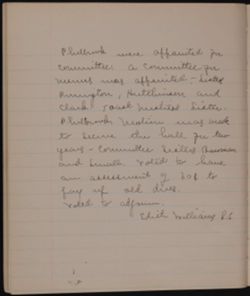 Philbrook were appointed for
committee. a committee for
menus was appointed - Sister
Purington, Hutchinson and
Clark.
Philbrook. Motion was made
to secure the hall for two
years - Committee Sisters
and Small. Voted to have
an assessment of 20¢ to
pay up old dues.
Voted to adjourn.
Williams R.S.